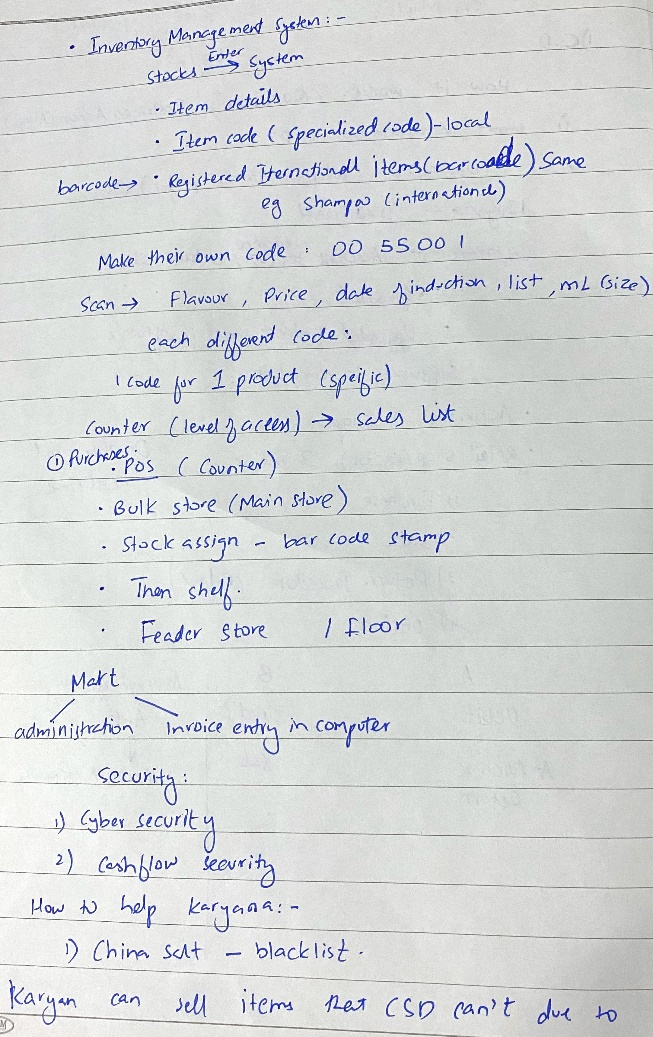 • Inventory Management System: -
Stocks Enter → System
• Item details
• Item code (specialized code) - local
barcode → • Registered Iternationall items (barcoade) Same
eg Shampoo (international)
Make their own code : 00 55 00 1
Scan → Flavour, Price, date of induction, list, mL (size)
each different code:
1 code for 1 product (speific)
Counter (level of access) → sales list
① Purchases:
• POS (Counter)
• Bulk store (Main store)
• Stock assign - bar code stamp
• Then shelf.
• Feader Store 1 floor
Mart
administration Invoice entry in computer
Security:
1) Cyber security
2) Cashflow security
How to help Karyana: -
1) China salt - blacklist.
Karyan can sell items that CSD can't due to